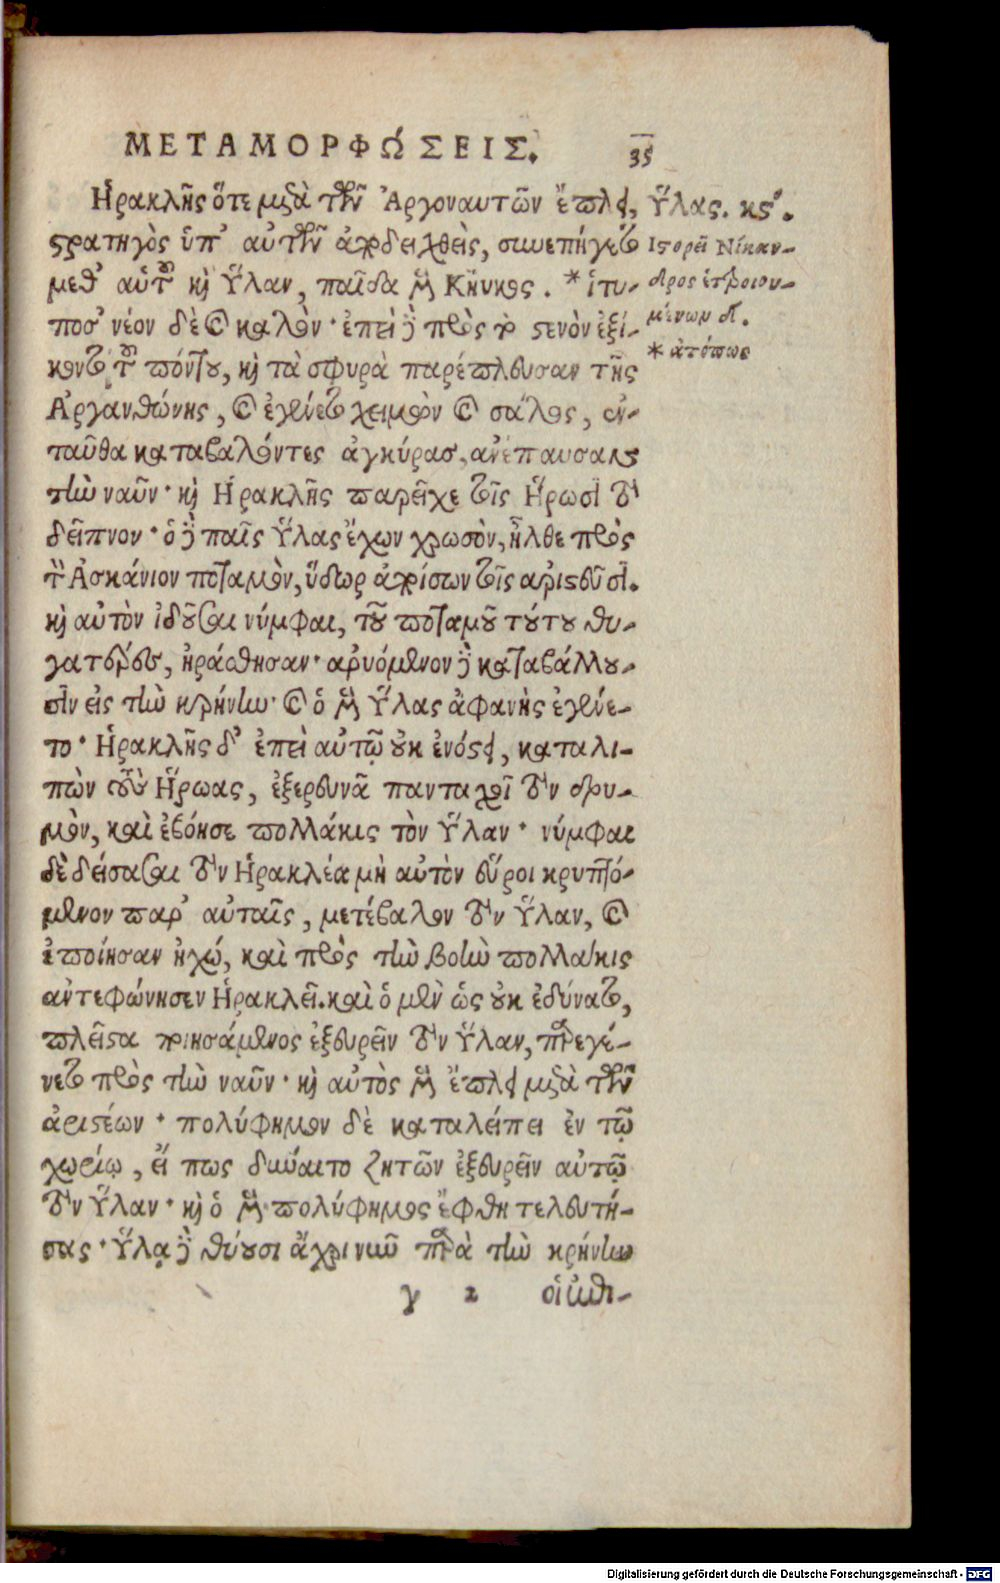 ΜΕΤΑΜΟΡΦΩ´ΣΕΙΣ. 35
Ἡρακλῆς ὅτε μετὰ τῶν Ἀργοναυτῶν ἔπλει,
Ὕλας. κϛ.
στρατηγὸς ὑπ' αὐτῶν ἀποδειχθεὶς, συνεπήγετο
Ἱστορεῖ Νίκαν-
μεθ' αὑτοῦ καὶ Ὕλαν, παῖδα μὲν Κήυκος. * ἱτυ-
δρος ἑτεροιου-
ποσ' νέον δὲ καὶ καλόν· ἐπεὶ δὲ πρὸς τὸ στενὸν ἐξί-
μένων β.
κοντο τοῦ πόντου, καὶ τὰ σφυρὰ παρέπλευσαν τῆς
* ἀτόπως
Ἀργανθώνης, καὶ ἐγένετο χειμὼν καὶ σάλος, ἐν-
ταῦθα καταβαλόντες ἀγκύρας, ἀνέπαυσαν
τὴν ναῦν· καὶ Ἡρακλῆς παρεῖχε τοῖς Ἥρωσι τὸ
δεῖπνον· ὁ δὲ παῖς Ὕλας ἔχων χρωσὸν, ἦλθε πρὸς
τὸν Ἀσκάνιον ποταμὸν, ὕδωρ ἀποίσων τοῖς ἀριστεῦσιν.
καὶ αὐτὸν ἰδοῦσαι νύμφαι, τοῦ ποταμοῦ τούτου θυ-
γατέρες, ἠράσθησαν· ἀρυόμενον δὲ καταβάλλου-
σιν εἰς τὴν κρήνην· καὶ ὁ μὲν Ὕλας ἀφανὴς ἐγένε-
το· Ἡρακλῆς δ' ἐπεὶ αὐτῷ οὐκ ἐνόστει, καταλι-
πὼν τοὺς Ἥρωας, ἐξερευνᾷ πανταχοῖ τὸν δρυ-
μὸν, καὶ ἐβόησε πολλάκις τὸν Ὕλαν· νύμφαι
δὲ δείσασαι τὸν Ἡρακλέα μὴ αὐτὸν εὕροι κρυπτό-
μενον παρ' αὐταῖς, μετέβαλον τὸν Ὕλαν, καὶ
ἐποίησαν ἠχώ, καὶ πρὸς τὴν βοὴν πολλάκις
ἀντεφώνησεν Ἡρακλεῖ. καὶ ὁ μὲν ὡς οὐκ ἐδύνατο,
πλεῖστα ποιησάμενος ἐξευρεῖν τὸν Ὕλαν, παρεγέ-
νετο πρὸς τὴν ναῦν· καὶ αὐτὸς μὲν ἔπλει μετὰ τῶν
ἀριστέων· πολύφημον δὲ καταλείπει ἐν τῷ
χωρίῳ, εἴ πως δύναιτο ζητῶν ἐξευρεῖν αὐτῷ
τὸν Ὕλαν· καὶ ὁ μὲν πολύφημος ἔφθη τελευτή-
σας· Ὕλᾳ δὲ θύουσι ἄχρι νῦν παρὰ τὴν κρήνην
γ 2 οἱ ἐπι-
Digitalisierung gefördert durch die Deutsche Forschungsgemeinschaft - DFG